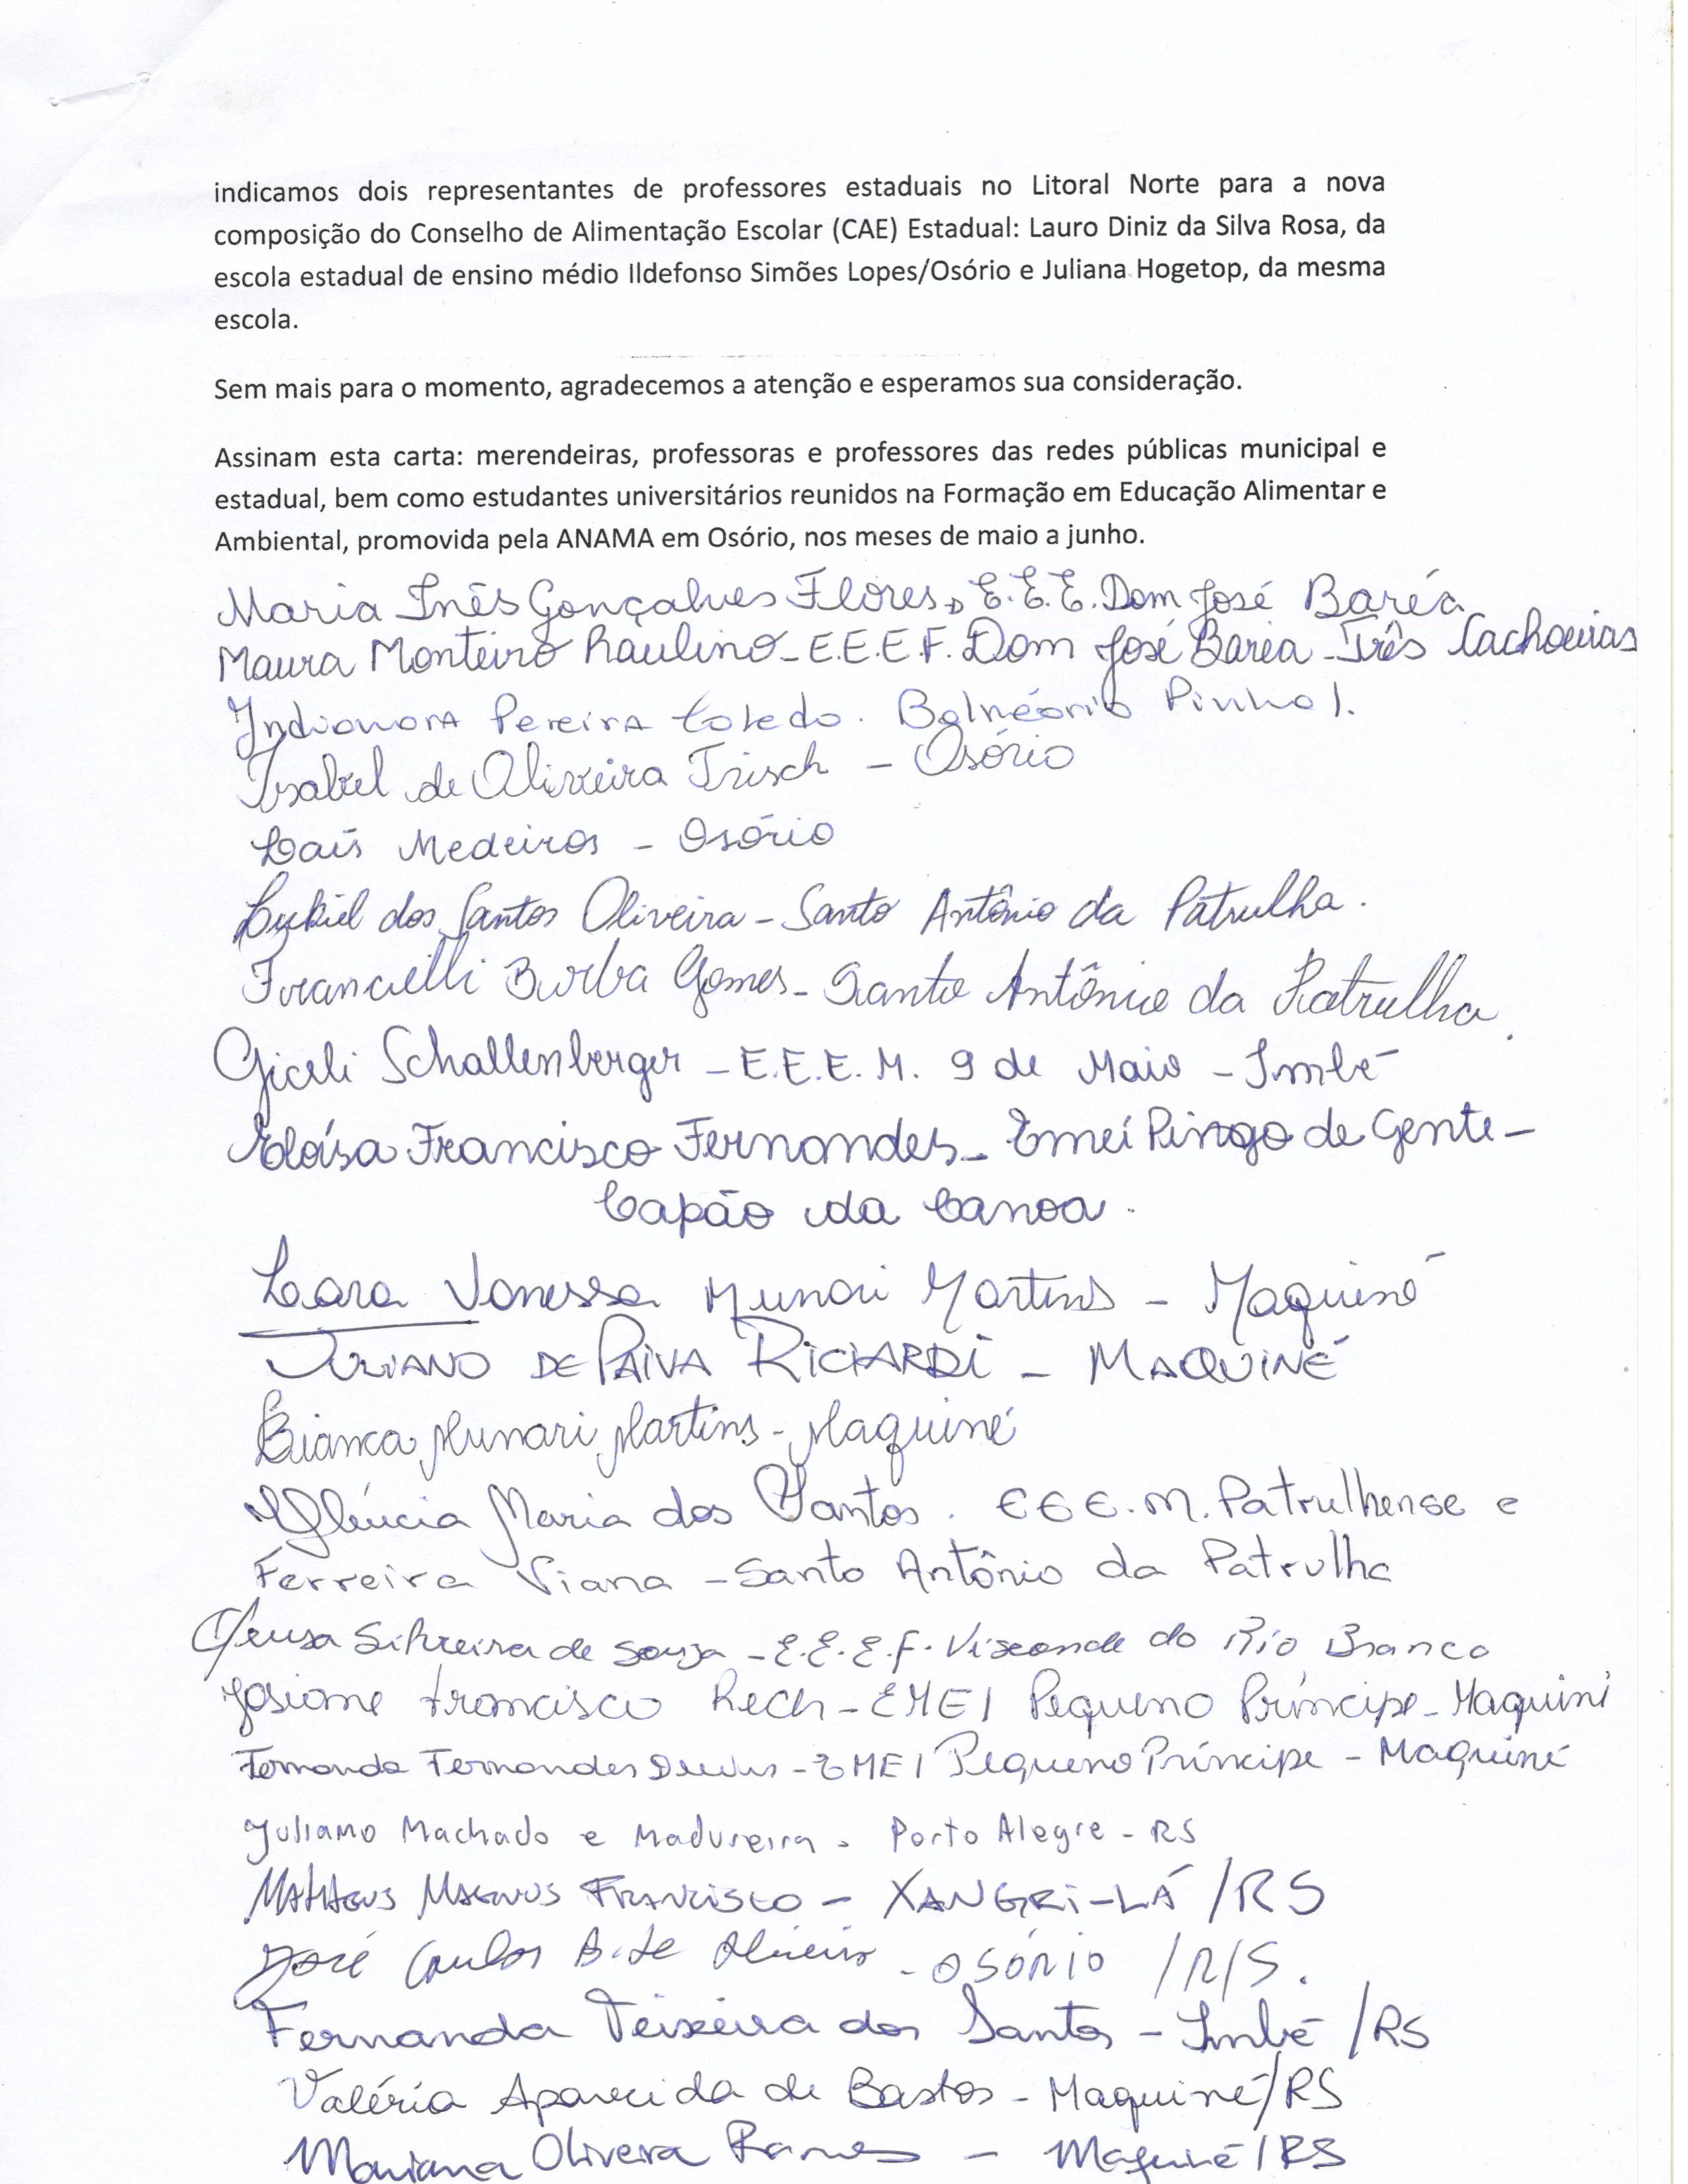 indicamos dois representantes de professores estaduais no Litoral Norte para a nova
composição do Conselho de Alimentação Escolar (CAE) Estadual: Lauro Diniz da Silva Rosa, da
escola estadual de ensino médio Ildefonso Simões Lopes/Osório e Juliana Hogetop, da mesma
escola.
Sem mais para o momento, agradecemos a atenção e esperamos sua consideração.
Assinam esta carta: merendeiras, professoras e professores das redes públicas municipal e
estadual, bem como estudantes universitários reunidos na Formação em Educação Alimentar e
Ambiental, promovida pela ANAMA em Osório, nos meses de maio a junho.
Maria Inês Gonçalves Flores, E.E.E. Dom José Baréa
Maura Monteiro Raulino - E.E.E.F. Dom José Barea - Três Cachoeiras
Pereira Toledo. Balneário Pinhal.
Isabel de Oliveira Trisch - Osório
Laís Medeiros - Osório
Ezekiel dos Santos Oliveira - Santo Antônio da Patrulha.
Francielli Burba Gomes - Santo Antônio da Patrulha.
Giceli Schallenberger - E.E.E.M. 9 de Maio - Imbé
Eloísa Francisco Fernandes - Emei Pingo de Gente -
Capão da Canoa.
Lara Vanessa Munari Martins - Maquiné
JULIANO DE PAIVA RICIARDI - MAQUINÉ
Bianca Munari Martins - Maquiné
Maria dos Santos. E E E. M. Patrulhense e
Ferreira Viana - Santo Antônio da Patrulha
Silveira de Souza - E.E.E.F. Visconde do Rio Branco
Josiane Francisco Rech - EMEI Pequeno Príncipe - Maquiné
Fernanda Fernandes - EMEI Pequeno Príncipe - Maquiné
Juliano Machado e Madureira - Porto Alegre - RS
MATHEUS MAGNUS FRANCISCO - XANGRI-LÁ /RS
José Carlos B. de - OSÓRIO /R/S.
Fernanda Teixeira dos Santos - Imbé /RS
Valéria Aparecida de Bastos - Maquiné/RS
Mariana Oliveira Ramos - Maquiné/RS